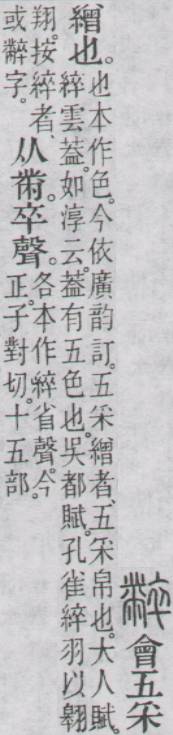 𪓌會五采
繒也。也本作色。今依廣韵訂。五采繒者、五采帛也。大人賦。綷雲葢。如淳云。葢有五色也。吳都賦。孔雀綷羽以翱
翔。按綷者、或𪓌字。从黹。卒聲。各本作綷省聲。今正。子對切。十五部。